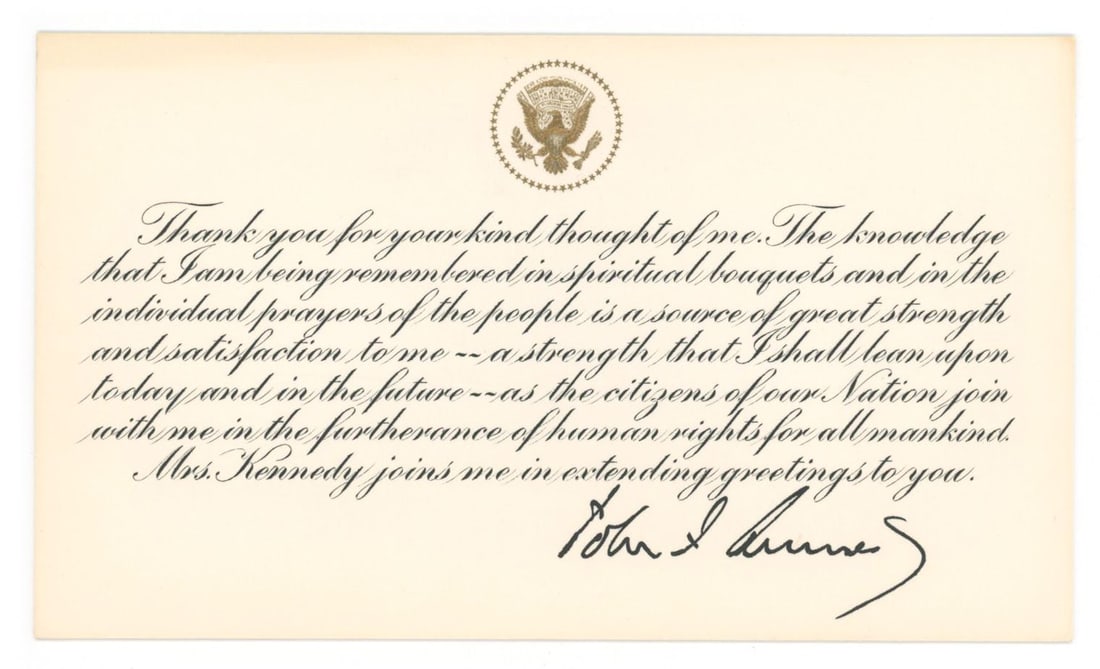 Thank you for your kind thought of me. The knowledge
that I am being remembered in spiritual bouquets and in the
individual prayers of the people is a source of great strength
and satisfaction to me -- a strength that I shall lean upon
today and in the future -- as the citizens of our Nation join
with me in the furtherance of human rights for all mankind.
Mrs. Kennedy joins me in extending greetings to you.
John F Kennedy